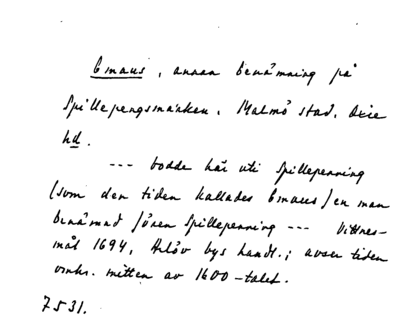 Emaus, annan benämning på
Spillepengsmarken. Malmö stad. Oxie
hd.
--- bodde här uti Spillepenning
(som den tiden kallades Emaus) en man
benämnd Jören Spillepenning --- Vittnes-
mål 1694, Arlöv bys handl.; avser tiden
omkr. mitten av 1600-talet.
7531.